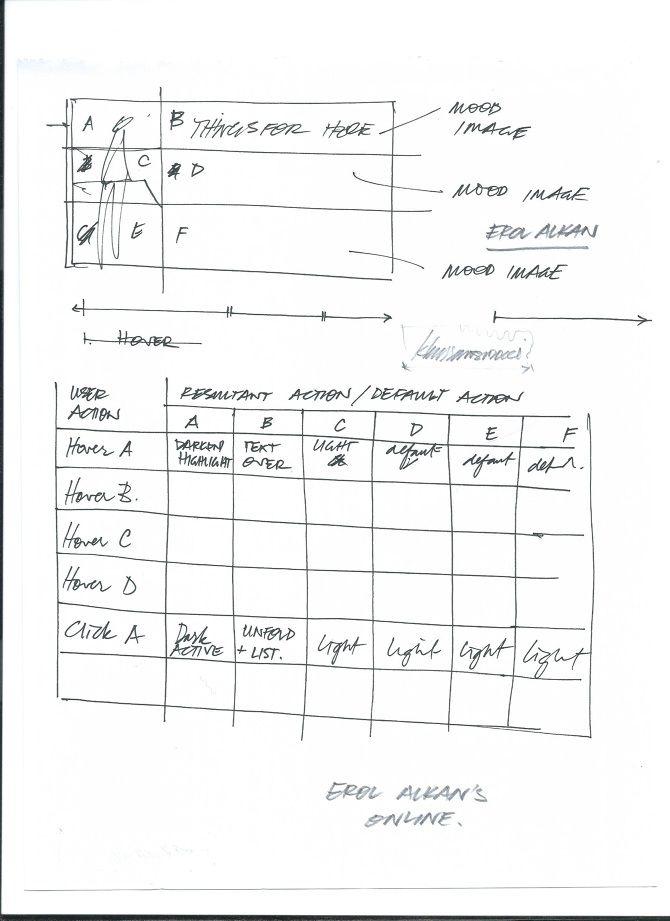 A
B THINGS FOR HOPE
MOOD
IMAGE
C
D
MOOD IMAGE
EROL ALKAN
E
F
MOOD IMAGE
1. HOVER
USER
ACTION
RESULTANT ACTION / DEFAULT ACTION
A B C D E F
Hover A
DARKEN
HIGHLIGHT
TEXT
OVER
LIGHT
default
defaut
Hover B.
Hover C
Hover D
Click A
Dark
ACTIVE
UNFOLD
+ LIST.
Light
Light
Light
Light
EROL ALKAN'S
ONLINE.